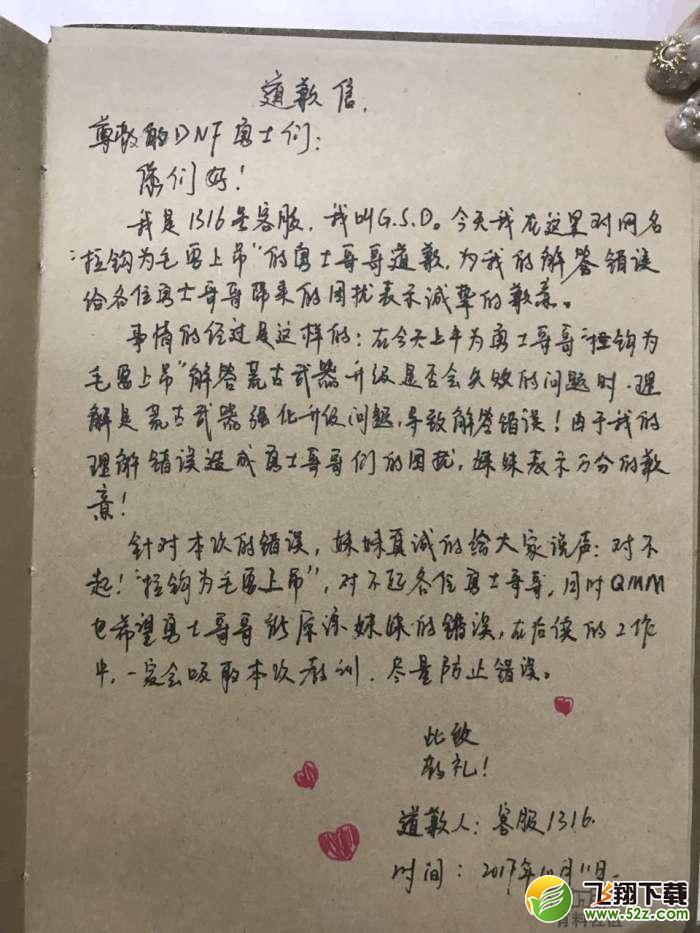 道歉信.
尊敬的DNF勇士们：
你们好！
我是1316号客服，我叫G.S.D。今天我在这里对网名
“拉钩为毛要上吊”的勇士哥哥道歉，为我的解答错误
给各位勇士哥哥带来的困扰表示诚挚的歉意。
事情的经过是这样的：在今天上午为勇士哥哥“拉钩为
毛要上吊”解答荒古武器升级是否会失败的问题时，理
解是荒古武器强化升级问题，导致解答错误！由于我的
理解错误造成勇士哥哥们的困扰，妹妹表示万分的歉
意！
针对本次的错误，妹妹真诚的给大家说声：对不
起！“拉钩为毛要上吊”，对不起各位勇士哥哥，同时QMM
也希望勇士哥哥能原谅妹妹的错误，在后续的工作
中，一定会吸取本次教训，尽量防止错误。
此致
敬礼！
道歉人：客服1316.
时间：2017年10月11日.
飞翔下载
www.52z.com